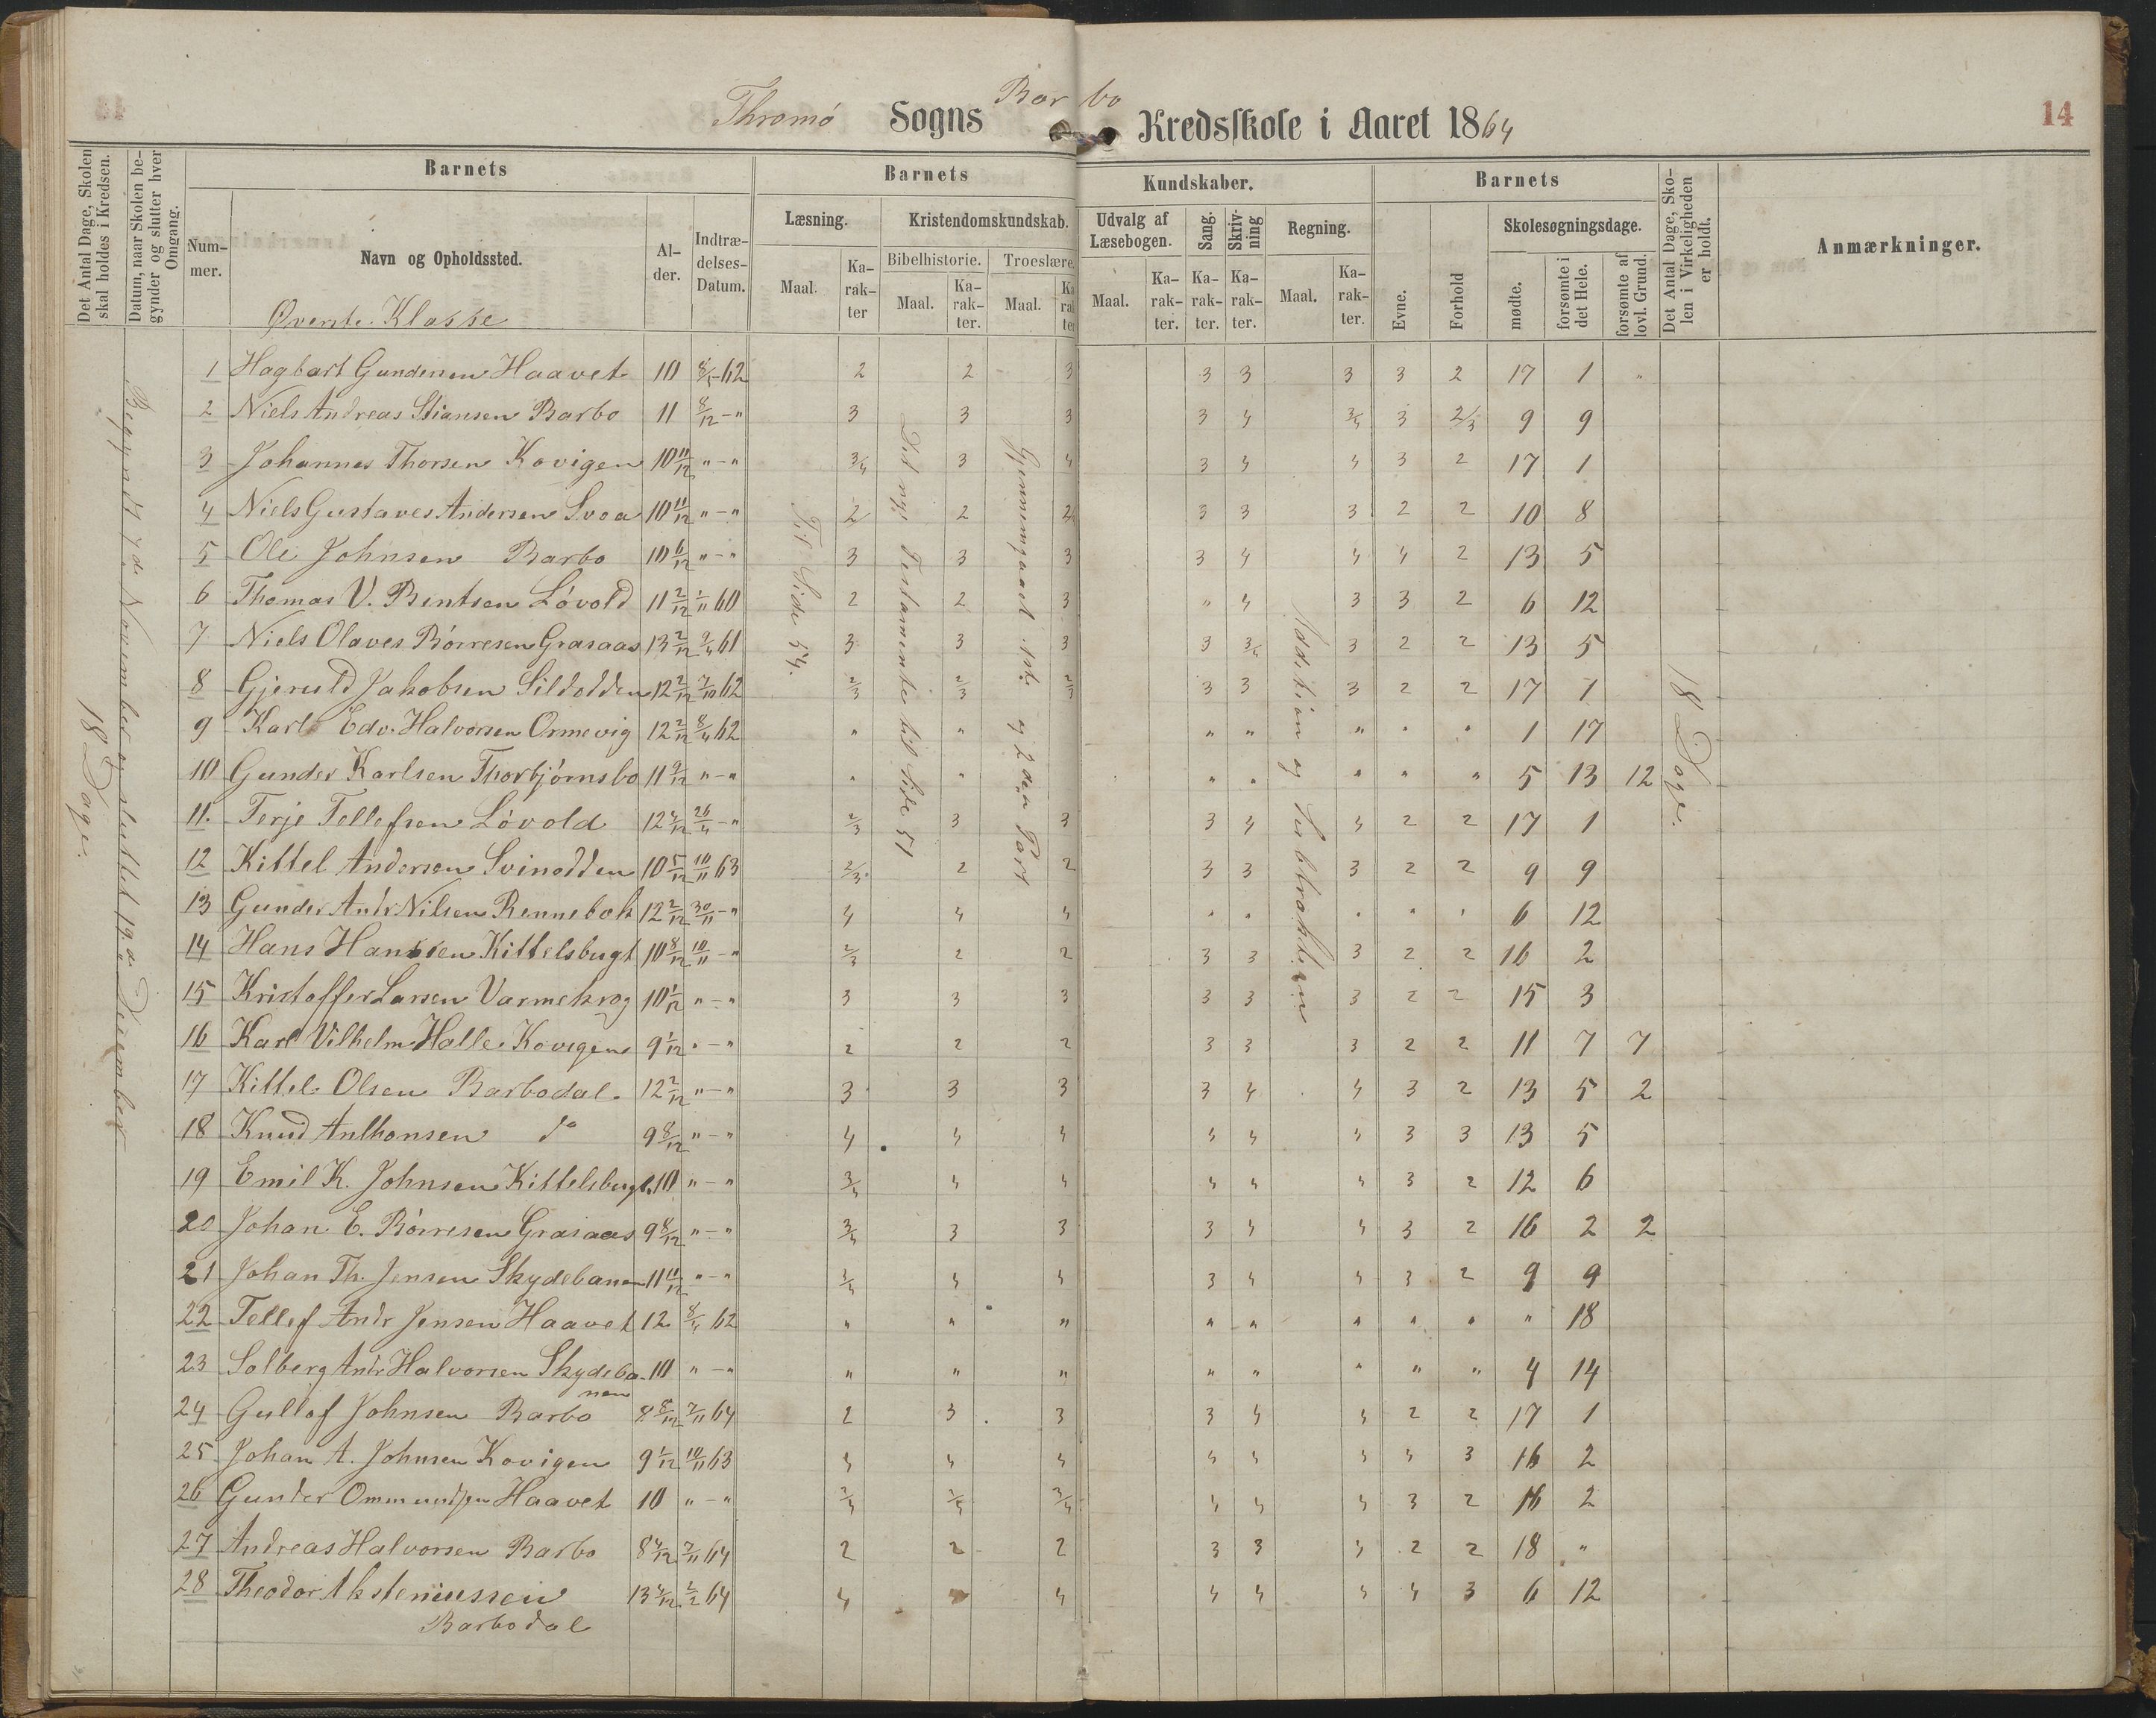 Thromø Sogns Barbo Kredsskole i Aaret 1864
14
Det Antal Dage, Skolen skal holdes i Kredsen.
Datum, naar Skolen begynder og slutter hver Omgang.
Barnets
Barnets
Kundskaber.
Barnets
Det Antal Dage, Skolen i Virkeligheden er holdt.
Anmærkninger.
Nummer.
Navn og Opholdssted.
Alder.
Indtrædelses-Datum.
Læsning.
Kristendomskundskab.
Udvalg af Læsebogen.
Sang.
Skrivning
Regning.
Evne.
Forhold
Skolesøgningsdage.
Bibelhistorie.
Troeslære.
Maal.
Karakter
Maal.
Karakter.
Maal.
Karakter
Maal.
Karakter.
Karakter.
Karakter.
Maal.
Karakter.
mødte.
forsømte i det Hele.
forsømte af lovl. Grund.
Øverste Klasse
18 Dage.
Begyndt 7d November og sluttet 19d December
Til Side 54.
Det nye Testamente til Side 51
Gjennemgaaet 1ste og 2den Part
Addition og Subtraktion
18 Dage.
1 Hagbart Gundersen Haavet 10 8/4-62 2 2 3 3 3 3 3 2 17 1 "
2 Niels Andreas Stiansen Barbo 11 8/12 - " 3 3 3 3 4 3/4 3 2/3 9 9
3 Johannes Thorsen Kovigen 10 11/12 " - " 3/4 3 4 3 4 4 3 2 17 1
4 Niels Gustaves Andersen Svoa 10 11/12 " - " 2 2 2 3 3 3 2 2 10 8
5 Ole Johnsen Barbo 10 6/12 " - " 3 3 3 3 4 4 4 2 13 5
6 Thomas V. Bentsen Løvold 11 2/12 1/11 60 2 2 3 " 4 3 3 2 6 12
7 Niels Olaves Børresen Grasaas 13 2/12 2/4 61 3 3 3 3 3/4 3 2 2 13 5
8 Gjeruld Jakobsen Sildodden 12 2/12 7/10 62 2/3 2/3 2/3 3 3 3 2 2 17 1
9 Karl Edv. Halvorsen Ormevig 12 2/12 8/4 62 " " " " " " " 1 17
10 Gunder Karlsen Thorbjørnsbo 11 9/12 " - " " " " " " " " 5 13 12
11. Terje Tellefsen Løvold 12 4/12 26/4 - " 2/3 3 3 3 4 4 2 2 17 1
12 Kittel Andersen Svinodden 10 5/12 10/11 63 2/3 2 2 3 3 3 2 2 9 9
13 Gunder Andr Nilsen Rennebok 12 2/12 30/11 - " 4 4 4 " " " " " 6 12
14 Hans Hanssen Kittelsbugt 10 8/12 10/11 - " 2/3 2 2 3 3 3 2 2 16 2
15 Kristoffer Larsen Varmekrog 10 1/12 " - " 3 3 3 3 3 3 2 2 15 3
16 Karl Vilhelm Halle Kovigen 9 1/12 " - " 2 2 2 3 3 3 2 2 11 7 7
17 Kittel Olsen Barbodal. 12 2/12 " - " 3 3 3 3 4 4 3 2 13 5 2
18 Knud Anthonsen do 9 8/12 " - " 4 4 4 4 4 4 3 3 13 5
19 Emil K. Johnsen Kittelsbugt. 10 " - " 3/4 4 4 4 4 4 3 2 12 6
20 Johan E. Børresen Grasaas 9 8/12 " - " 3/4 3 3 3 4 4 3 2 16 2 2
21 Johan Th. Jensen Skydebanen 11 11/12 " - " 3/4 4 4 3 4 4 3 2 9 9
22 Tellef Andr Jensen Haavet 12 8/4 62 " " " " " " " " " 18
23 Solberg Andr Halvorsen Skydebanen 10 " - " " " " " " " " " 4 14
24 Gullof Johnsen Barbo 8 8/12 7/11 64 2 3 3 3 4 4 2 2 17 1
25 Johan A. Johnsen Kovigen 9 1/12 10/11 63 4 4 4 4 4 4 4 3 16 2
26 Gunder Ommundsen Haavet 10 " - " 3/4 3/4 3/4 4 4 4 3 2 16 2
27 Andreas Halvorsen Barbo 8 4/12 7/11 64 2 2 2 3 3 4 2 2 18 "
28 Theodor Asteniussen 13 4/12 2/2 64 4 4 4 4 4 4 3 6 12
Barbodal